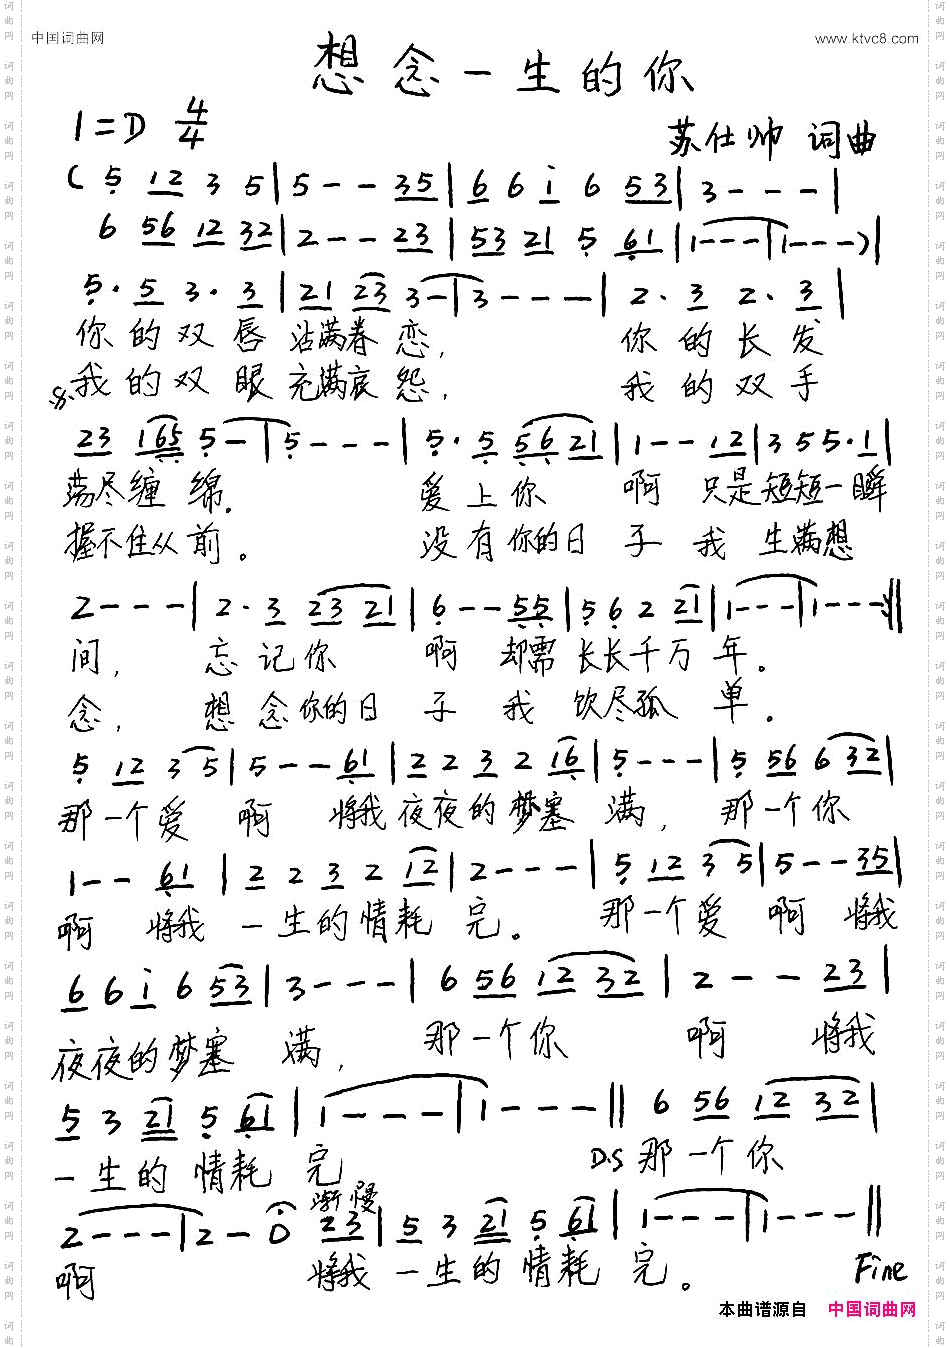 中国词曲网
www.ktvc8.com
想念一生的你
1=D 4/4
苏仕帅 词曲
( 5 12 3 5 | 5 - - 35 | 6 6 i 6 53 | 3 - - - |
6 56 12 32 | 2 - - 23 | 53 21 5 61 | 1 - - - | 1 - - - ) |
5 · 5 3 · 3 | 21 23 3 - | 3 - - - | 2 · 3 2 · 3 |
你的双唇沾满眷恋, 你的长发
我的双眼充满哀怨, 我的双手
23 165 5 - | 5 - - - | 5 · 5 56 21 | 1 - - 12 | 3 5 5 · 1 |
荡尽缠绵. 爱上你 啊 只是短短一瞬
握不住从前。 没有你的日子我生满想
2 - - - | 2 · 3 23 21 | 6 - - 55 | 5 6 2 21 | 1 - - - | 1 - - - :||
间, 忘记你 啊 却需长长千万年。
念, 想念你的日子我饮尽孤单.
5 12 3 5 | 5 - - 61 | 2 2 3 2 16 | 5 - - - | 5 56 6 32 |
那一个爱 啊 将我夜夜的梦塞满, 那一个你
1 - - 61 | 2 2 3 2 12 | 2 - - - | 5 12 3 5 | 5 - - 35 |
啊 将我一生的情耗完。 那一个爱 啊 将我
6 6 i 6 53 | 3 - - - | 6 56 12 32 | 2 - - 23 |
夜夜的梦塞满, 那一个你 啊 将我
5 3 21 5 61 | 1 - - - | 1 - - - || 6 56 12 32 |
一生的情耗完 D.S 那一个你
渐慢
2 - - - | 2 - 0 23 | 5 3 21 5 61 | 1 - - - | 1 - - - ||
啊 将我一生的情耗完。 Fine
本曲谱源自 中国词曲网